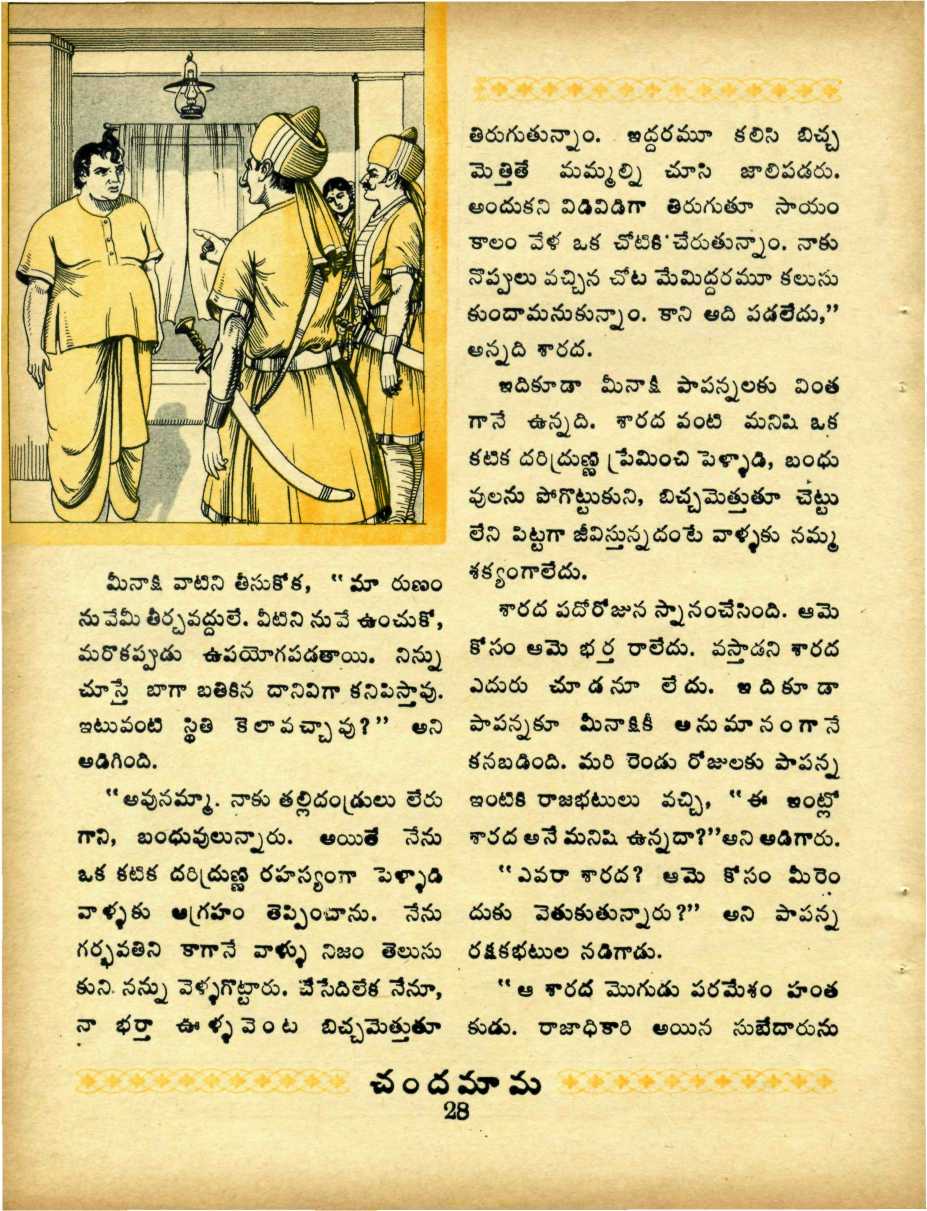 మీనాక్షి వాటిని తీసుకోక, "మా రుణం
నువేమీ తీర్చవద్దులే. వీటిని నువే ఉంచుకో,
మరొకప్పుడు ఉపయోగపడతాయి. నిన్ను
చూస్తే బాగా బతికిన దానివిగా కనిపిస్తావు.
ఇటువంటి స్థితి కెలావచ్చావు?" అని
అడిగింది.
"అవునమ్మా. నాకు తల్లిదండ్రులు లేరు
గాని, బంధువులున్నారు. అయితే నేను
ఒక కటిక దరిద్రుణ్ణి రహస్యంగా పెళ్ళాడి
వాళ్ళకు ఆగ్రహం తెప్పించాను. నేను
గర్భవతిని కాగానే వాళ్ళు నిజం తెలుసు
కుని నన్ను వెళ్ళగొట్టారు. చేసేదిలేక నేనూ,
నా భర్తా ఊళ్ళవెంట బిచ్చమెత్తుతూ
తిరుగుతున్నాం. ఇద్దరమూ కలిసి బిచ్చ
మెత్తితే మమ్మల్ని చూసి జాలిపడరు.
అందుకని విడివిడిగా తిరుగుతూ సాయం
కాలం వేళ ఒక చోటికి చేరుతున్నాం. నాకు
నొప్పులు వచ్చిన చోట మేమిద్దరమూ కలుసు
కుందామనుకున్నాం. కాని అది పడలేదు,"
అన్నది శారద.
ఇదికూడా మీనాక్షీ పాపన్నలకు వింత
గానే ఉన్నది. శారద వంటి మనిషి ఒక
కటిక దరిద్రుణ్ణి ప్రేమించి పెళ్ళాడి, బంధు
వులను పోగొట్టుకుని, బిచ్చమెత్తుతూ చెట్టు
లేని పిట్టగా జీవిస్తున్నదంటే వాళ్ళకు నమ్మ
శక్యంగాలేదు.
శారద పదోరోజున స్నానంచేసింది. ఆమె
కోసం ఆమె భర్త రాలేదు. వస్తాడని శారద
ఎదురు చూడనూ లేదు. ఇదికూడా
పాపన్నకూ మీనాక్షికీ అనుమానంగానే
కనబడింది. మరి రెండు రోజులకు పాపన్న
ఇంటికి రాజభటులు వచ్చి, "ఈ ఇంట్లో
శారద అనే మనిషి ఉన్నదా?"అని అడిగారు.
"ఎవరా శారద? ఆమె కోసం మీరెం
దుకు వెతుకుతున్నారు?" అని పాపన్న
రక్షకభటుల నడిగాడు.
"ఆ శారద మొగుడు పరమేశం హంత
కుడు. రాజాధికారి అయిన సుబేదారును
చందమామ
28